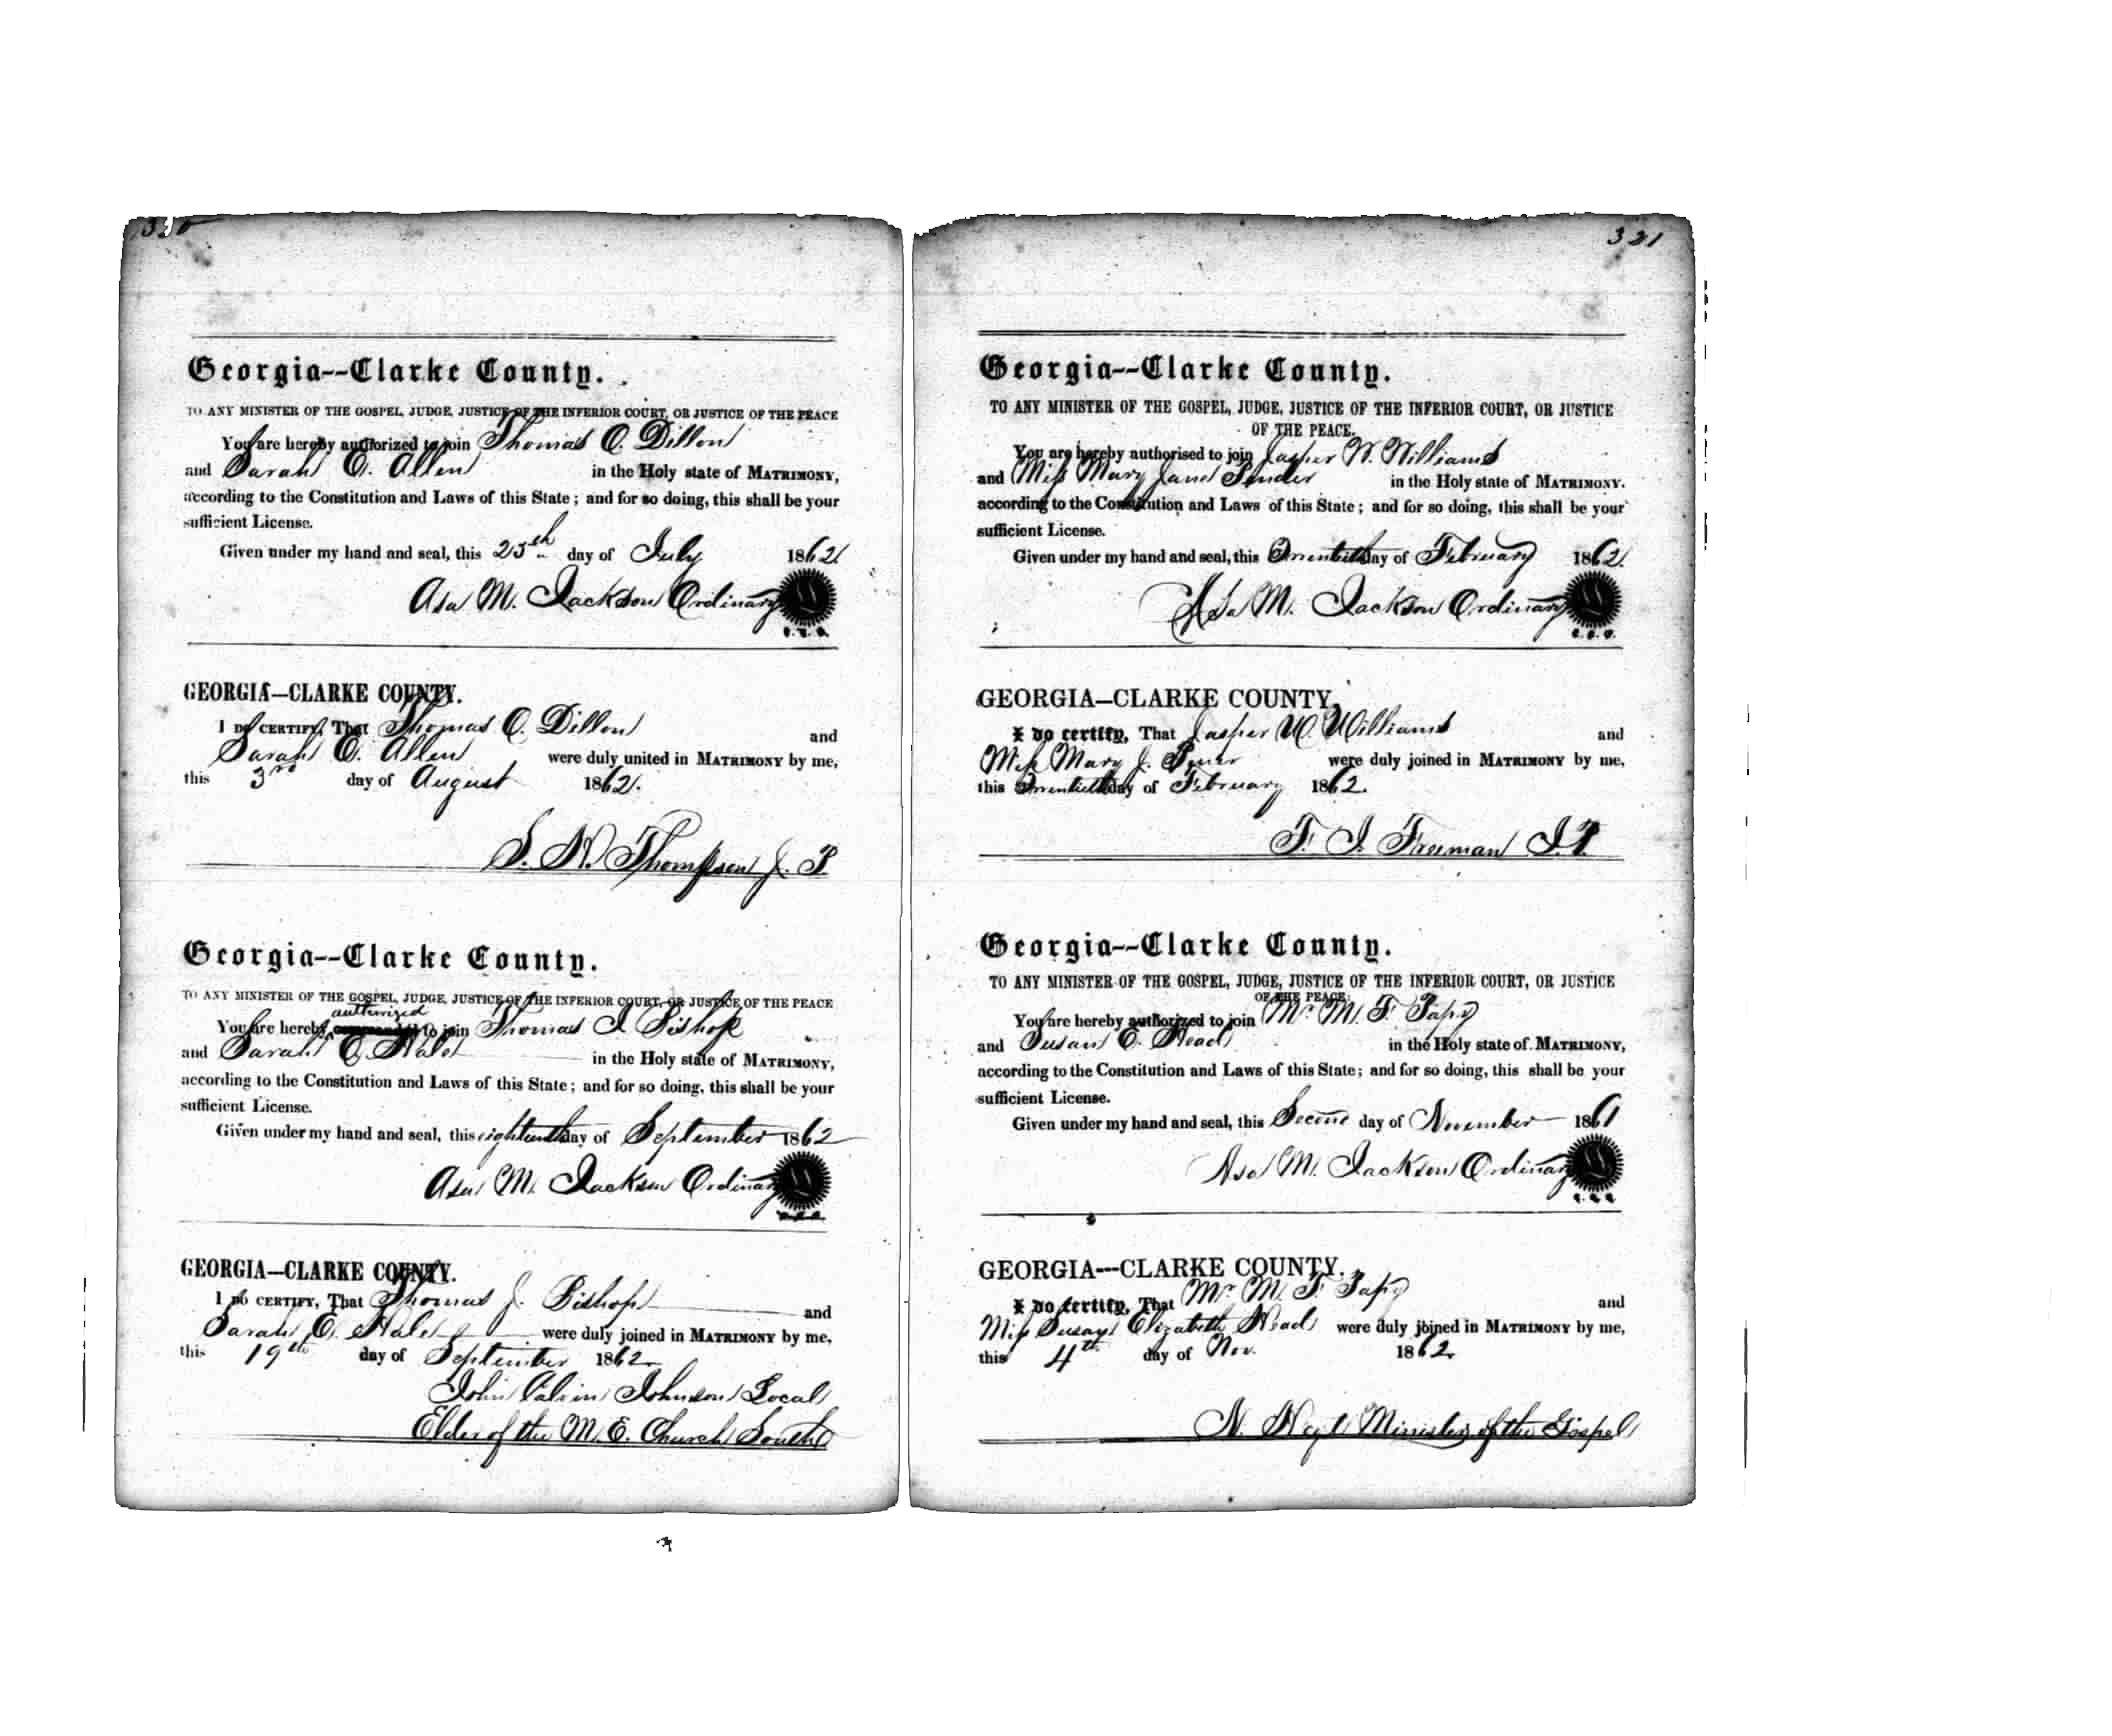 Georgia--Clarke County.
TO ANY MINISTER OF THE GOSPEL, JUDGE, JUSTICE OF THE INFERIOR COURT, OR JUSTICE OF THE PEACE
You are hereby authorized to join Thomas O. Dillon
and Sarah E. Allen in the Holy state of MATRIMONY,
according to the Constitution and Laws of this State; and for so doing, this shall be your
sufficient License.
Given under my hand and seal, this 25th day of July 1862
Asa M. Jackson Ordinary
GEORGIA—CLARKE COUNTY.
I DO CERTIFY, That Thomas O. Dillon and
Sarah E. Allen were duly united in MATRIMONY by me,
this 3rd day of August 1862.
S. N. Thompson J. P
Georgia--Clarke County.
TO ANY MINISTER OF THE GOSPEL, JUDGE, JUSTICE OF THE INFERIOR COURT, OR JUSTICE OF THE PEACE
authorized
You are hereby to join Thomas J Bishop
and Sarah E. Hale in the Holy state of MATRIMONY,
according to the Constitution and Laws of this State; and for so doing, this shall be your
sufficient License.
Given under my hand and seal, this eighteenth day of September 1862
Asa M. Jackson Ordinary
GEORGIA—CLARKE COUNTY.
I DO CERTIFY, That Thomas J. Bishop and
Sarah E. Hale were duly joined in MATRIMONY by me,
this 19th day of September 1862
John Calvin Johnson Local
Elder of the M. E. Church South
321
Georgia--Clarke County.
TO ANY MINISTER OF THE GOSPEL, JUDGE, JUSTICE OF THE INFERIOR COURT, OR JUSTICE
OF THE PEACE.
You are hereby authorised to join Jasper W. Williams
and Miss Mary Jane in the Holy state of MATRIMONY.
according to the Constitution and Laws of this State; and for so doing, this shall be your
sufficient License.
Given under my hand and seal, this Twentieth day of February 1862.
Asa M. Jackson Ordinary
GEORGIA—CLARKE COUNTY.
I do certify, That Jasper W. Williams and
Miss Mary J. were duly joined in MATRIMONY by me,
this Twentieth day of February 1862.
F. J. Freeman J.P.
Georgia--Clarke County.
TO ANY MINISTER OF THE GOSPEL, JUDGE, JUSTICE OF THE INFERIOR COURT, OR JUSTICE
OF THE PEACE.
You are hereby authorized to join Mr M. F. Tapp
and Susan E. Head in the Holy state of MATRIMONY,
according to the Constitution and Laws of this State; and for so doing, this shall be your
sufficient License.
Given under my hand and seal, this Second day of November 1861
Asa M. Jackson Ordinary
GEORGIA---CLARKE COUNTY.
I do certify, That Mr M. F. Tapp and
Miss Susan Elizabeth Head were duly joined in MATRIMONY by me,
this 4th day of Nov. 1862
N. Hoyt Minister of the Gospel